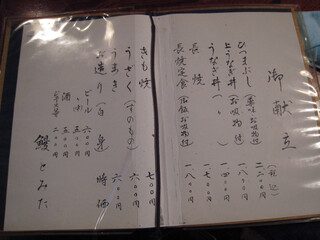 御献立
(税込)
ひつまぶし(薬味・お吸物付) 二二〇〇円
上うなぎ丼(お吸物付) 一八〇〇円
うなぎ丼(〃) 一四〇〇円
長焼 一五〇〇円
長焼定食(御飯・お吸物付) 一八〇〇円
きも焼 七〇〇円
うざく(すのもの) 六〇〇円
うまき 六〇〇円
上造り(白身) 時価
ビール 六〇〇円
〃(小) 五〇〇円
酒 五〇〇円
鰻 とみた